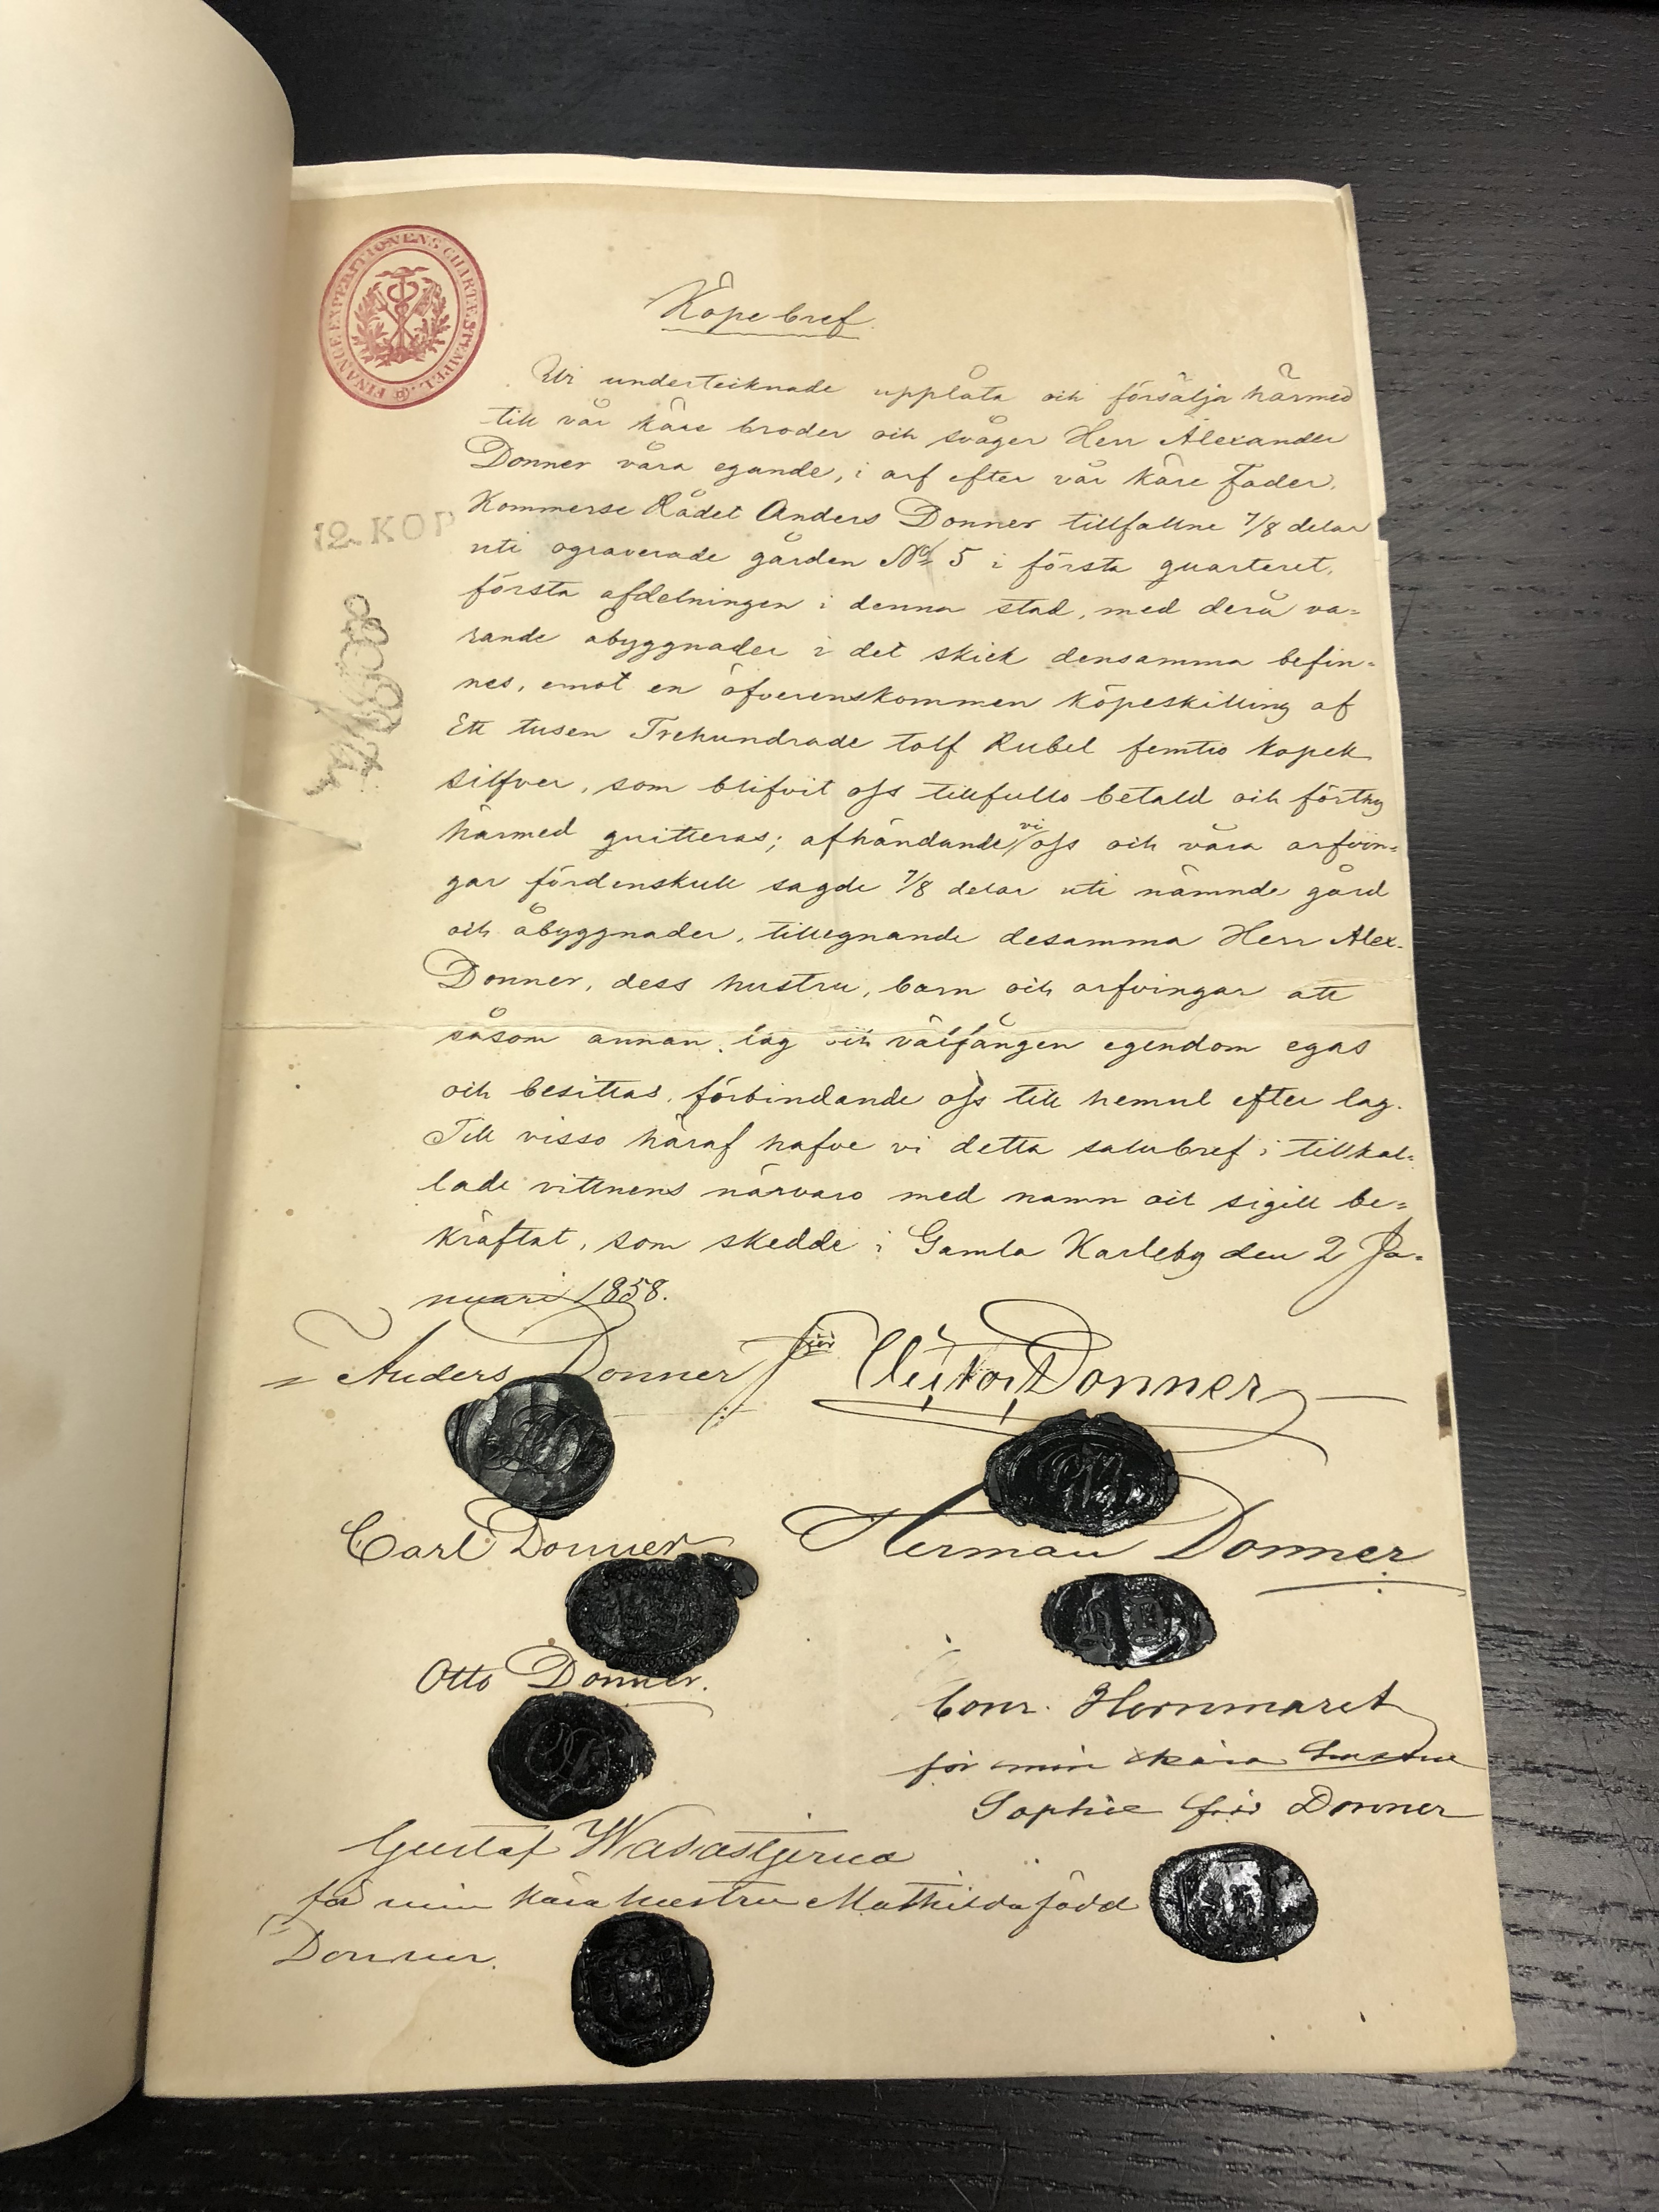 FINANCE EXPEDITIONENS CHARTÆ STEMPEL.
Köpebref.
Vi underteiknade upplåta och försälja härmed
till vår käre broder och svåger Herr Alexander
Donner våra egande, i arf efter vår käre Fader,
Kommerse Rådet Anders Donner tillfallne 7/8 delar
12. KOP
uti ograverade gården No 5 i första quarteret,
första afdelningen i denna stad, med derå va=
rande åbyggnader i det skick densamma befin=
nes, emot en öfverenskommen köpeskilling af
Ett tusen Trehundrade tolf Rubel femtio kopek
silfver, som blifvit oss tillfullo betald och förthy
härmed quitteras; afhändande vi oss och våra arfvin=
gar fördenskull sagde 7/8 delar uti nämnde gård
och åbyggnader, tillegnande desamma Herr Alex.
Donner, dess hustru, barn och arfvingar att
såsom annan lag och välfången egendom egas
och besittas, förbindande oss till hemul efter lag.
Till visso häraf hafve vi detta salubref i tillkal=
lade vittnens närvaro med namn och sigill be=
kräftat, som skedde i Gamla Karleby den 2 Ja=
nuari 1858.
Anders Donner för Victor Donner
Carl Donner Herman Donner
HD
Otto Donner.
Conr. Hornmarck
för min kära hustru
Sophie född Donner
Gustaf Wasastjerna
för min kära hustru Mathilda född
Donner.